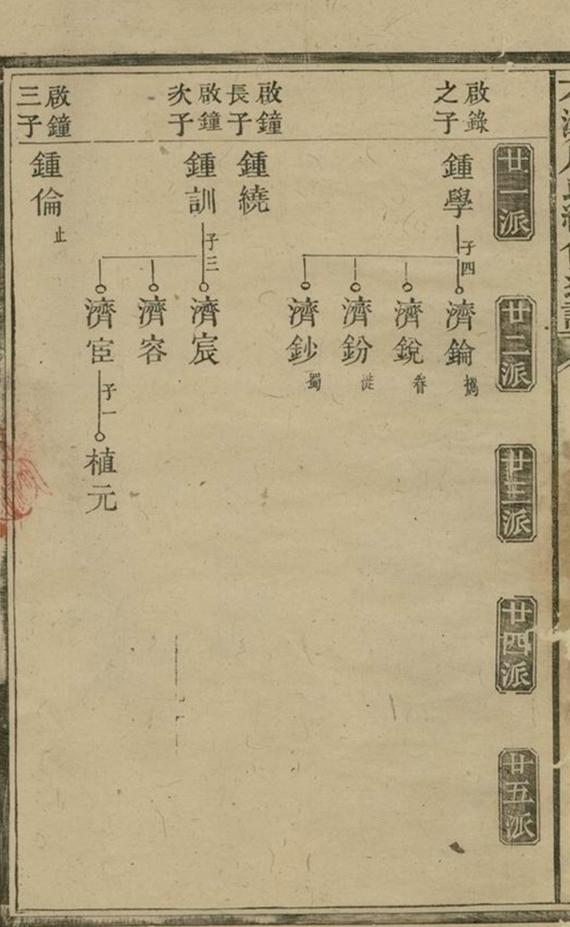 廿一派
廿二派
廿三派
廿四派
廿五派
啟錄
之子
鍾學
子四
濟錀
濟銳
濟鈖
濟鈔
蜀
啟鐘
長子
鍾繞
啟鐘
次子
鍾訓
子三
濟宸
濟容
濟宦
子一
植元
啟鐘
三子
鍾倫
止